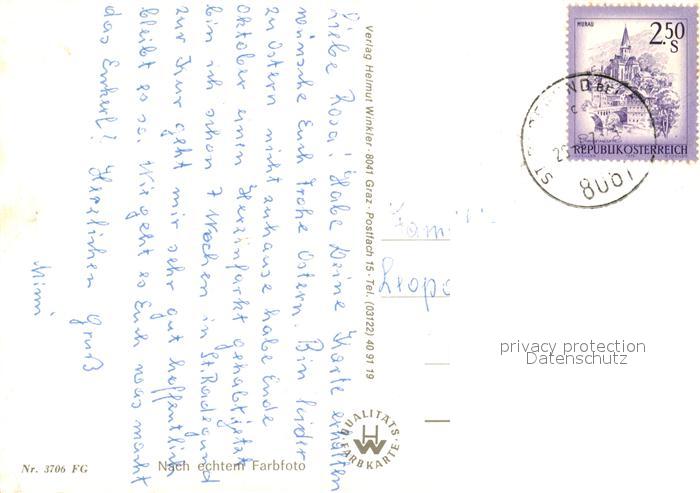 Liebe Rosa! Habe Deine Karte erhalten
wünsche Euch frohe Ostern. Bin leider
zu Ostern nicht zuhause habe Ende
Oktober einen Herzinfarkt gehabt jetzt
bin ich schon 7 Wochen in St. Radegund
zur Kur geht mir sehr gut hoffentlich
bleibt es so. Wie geht es Euch was macht
das Enkerl? Herzlichen Gruß
Mimi
Verlag Helmut Winkler · 8041 Graz · Postfach 15 · Tel. (03122) 40 91 19
MURAU
2.50
S
REPUBLIK ÖSTERREICH
8061
Leopo
privacy protection
Datenschutz
QUALITÄTS-
FARBKARTE
HW
Nr. 3706 FG
Nach echtem Farbfoto